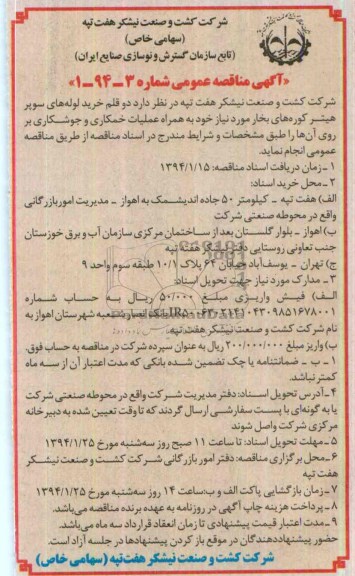 شرکت کشت و صنعت نیشکر هفت تپه
(سهامی خاص)
(تابع سازمان گسترش و نوسازی صنایع ایران)
«آگهی مناقصه عمومی شماره ۳-۹۴-۱»
شرکت کشت و صنعت نیشکر هفت تپه در نظر دارد دو قلم خرید لوله‌های سوپر
هیتر کوره‌های بخار مورد نیاز خود به همراه عملیات خمکاری و جوشکاری بر
روی آن‌ها را طبق مشخصات و شرایط مندرج در اسناد مناقصه از طریق مناقصه
عمومی انجام نماید.
۱ـ زمان دریافت اسناد مناقصه: ۱۳۹۴/۱/۱۵
۲ـ محل خرید اسناد:
الف) هفت تپه ـ کیلومتر ۵۰ جاده اندیمشک به اهواز ـ مدیریت امور بازرگانی
واقع در محوطه صنعتی شرکت
ب) اهواز ـ بلوار گلستان بعد از ساختمان مرکزی سازمان آب و برق خوزستان
جنب تعاونی روستایی دفتر نیشکر هفت تپه
ج) تهران ـ یوسف‌آباد خیابان ۶۴ پلاک ۱۰/۱ طبقه سوم واحد ۹
۳ـ مدارک مورد نیاز جهت تحویل اسناد:
الف) فیش واریزی مبلغ ۵۰۰/۰۰۰ ریال به حساب شماره
بانک انصار شعبه شهرستان اهواز به
نام شرکت کشت و صنعت نیشکر هفت تپه
ب) واریز مبلغ ۲۰۰/۰۰۰/۰۰۰ ریال به عنوان سپرده شرکت در مناقصه به حساب فوق.
۱ـ ب ـ ضمانتنامه یا چک تضمین شده بانکی که مدت اعتبار آن از سه ماه
کمتر نباشد.
۴ـ آدرس تحویل اسناد: دفتر مدیریت شرکت واقع در محوطه صنعتی شرکت
یا به گونه‌ای با پست سفارشی ارسال گردند که تا وقت تعیین شده به دبیرخانه
مرکزی شرکت واصل شوند
۵ـ مهلت تحویل اسناد: تا ساعت ۱۱ صبح روز سه‌شنبه مورخ ۱۳۹۴/۱/۲۵
۶ـ محل برگزاری مناقصه: دفتر امور بازرگانی شرکت کشت و صنعت نیشکر
هفت تپه
۷ـ زمان بازگشایی پاکت الف و ب: ساعت ۱۴ روز سه‌شنبه مورخ ۱۳۹۴/۱/۲۵
۸ـ پرداخت هزینه چاپ آگهی در روزنامه به عهده برنده مناقصه می‌باشد.
۹ـ مدت اعتبار قیمت پیشنهادی تا زمان انعقاد قرارداد سه ماه می‌باشد.
حضور پیشنهاددهندگان در موقع باز کردن پیشنهادها در جلسه آزاد است.
شرکت کشت و صنعت نیشکر هفت تپه (سهامی خاص)